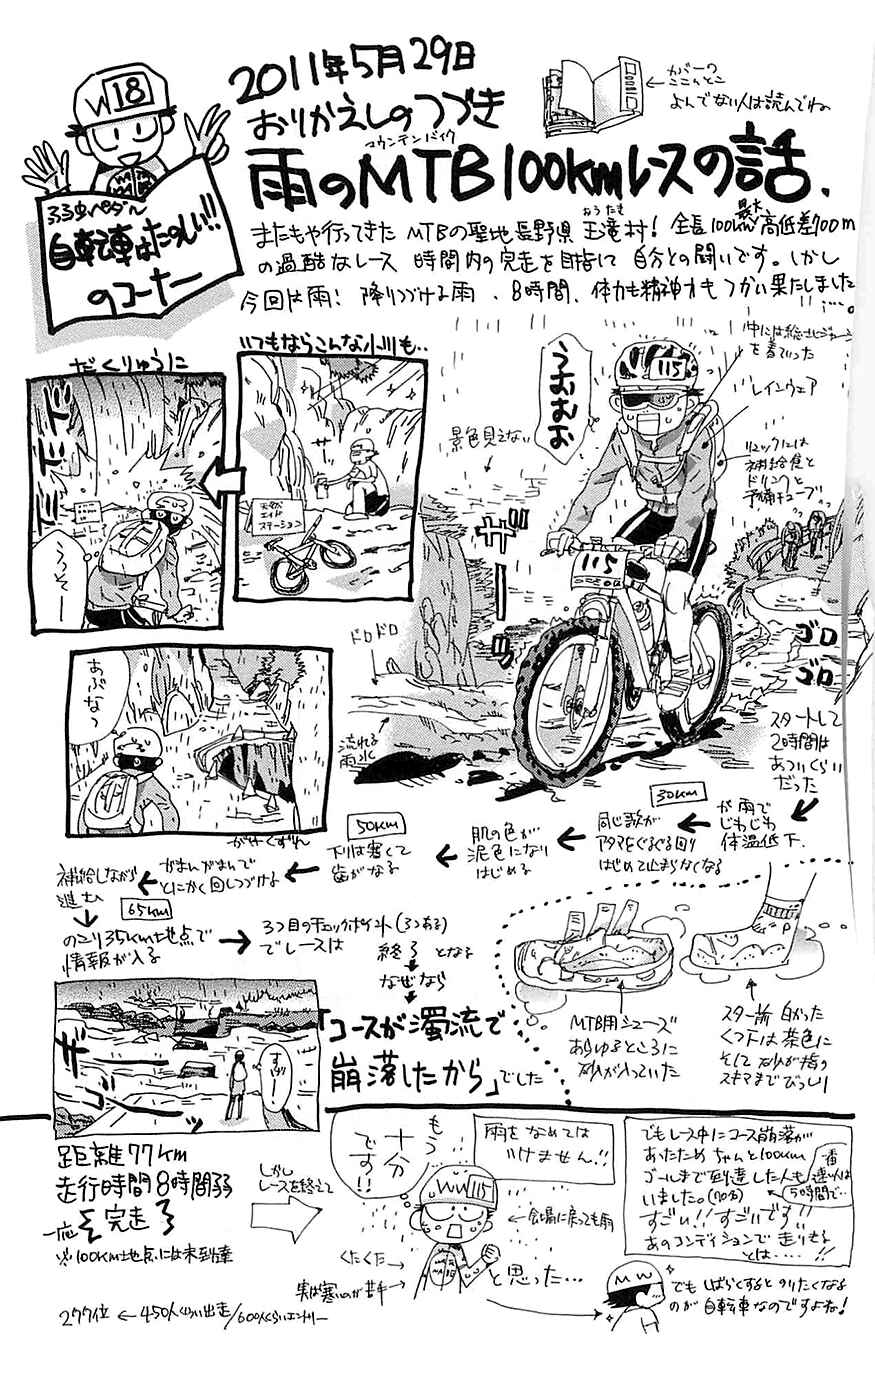 2011年5月29日
おりかえしのつづき
マウンテンバイク
雨のMTB100kmレースの話、
カバーの
ここんとこ
よんでない人は読んでね
W18
弱虫ペダル
自転車はたのしい!!
のコーナー
またもや行ってきた MTBの聖地長野県 王滝村! 全長100km 最大高低差700m
おうたき
の過酷なレース 時間内の完走を目指して 自分との闘いです。しかし
今回は雨! 降りつづける雨、8時間、体力も精神力もつかい果たしました…。
だくりゅうに
ドドドド
うっそー
いつもならこんな小川も..
天然
エイド
ステーション
景色見えない
うおむお
115
115
を着ていった
レインウェア
リュックには
補給食と
ドリンクと
予備チューブ
ザザ
ゴロゴロ
ドロドロ
流れる
雨水
あぶなっ
がけくずれ
スタートして
2時間は
あついくらい
だった
が 雨で
じわじわ
体温低下.
30km
同じ歌が
アタマをぐるぐる回り
はじめて止まらなくなる
肌の色が
泥色になり
はじめる
50km
下りは寒くて
歯がなる
がまんがまんで
とにかく回しつづける
補給しながら
進む
65km
のこり35km地点で
情報が入る
3つ目のチェックポイント(3つある)
でレースは
終了 となる
なぜなら
「コースが濁流で
崩落したから」でした
MTB用シューズ
あらゆるところに
砂が入っていた
スタート前 白かった
くつ下は茶色に
そして 砂が指の
スキマまでびっしり
ザーッ
すげー
距離77km
走行時間8時間弱
一応 完走
※100km地点には未到達
277位 ← 450人くらい出走/600人くらいエントリー
しかし
レースを終えて
もう
十分
です!!
雨をなめては
いけません!!
WW115
←会場に戻っても雨
くたくた
実は寒いのが苦手
と思った…
でもレース中にコース崩落が
あったため ちゃんと100km
ゴールまで到達した人も
いました。(90分)
一番
速い人は
5時間で…
すごい!! すごいです!!
あのコンディションで 走りきる
とは……!!
MW
でも しばらくすると のりたくなる
のが 自転車なのですよね!